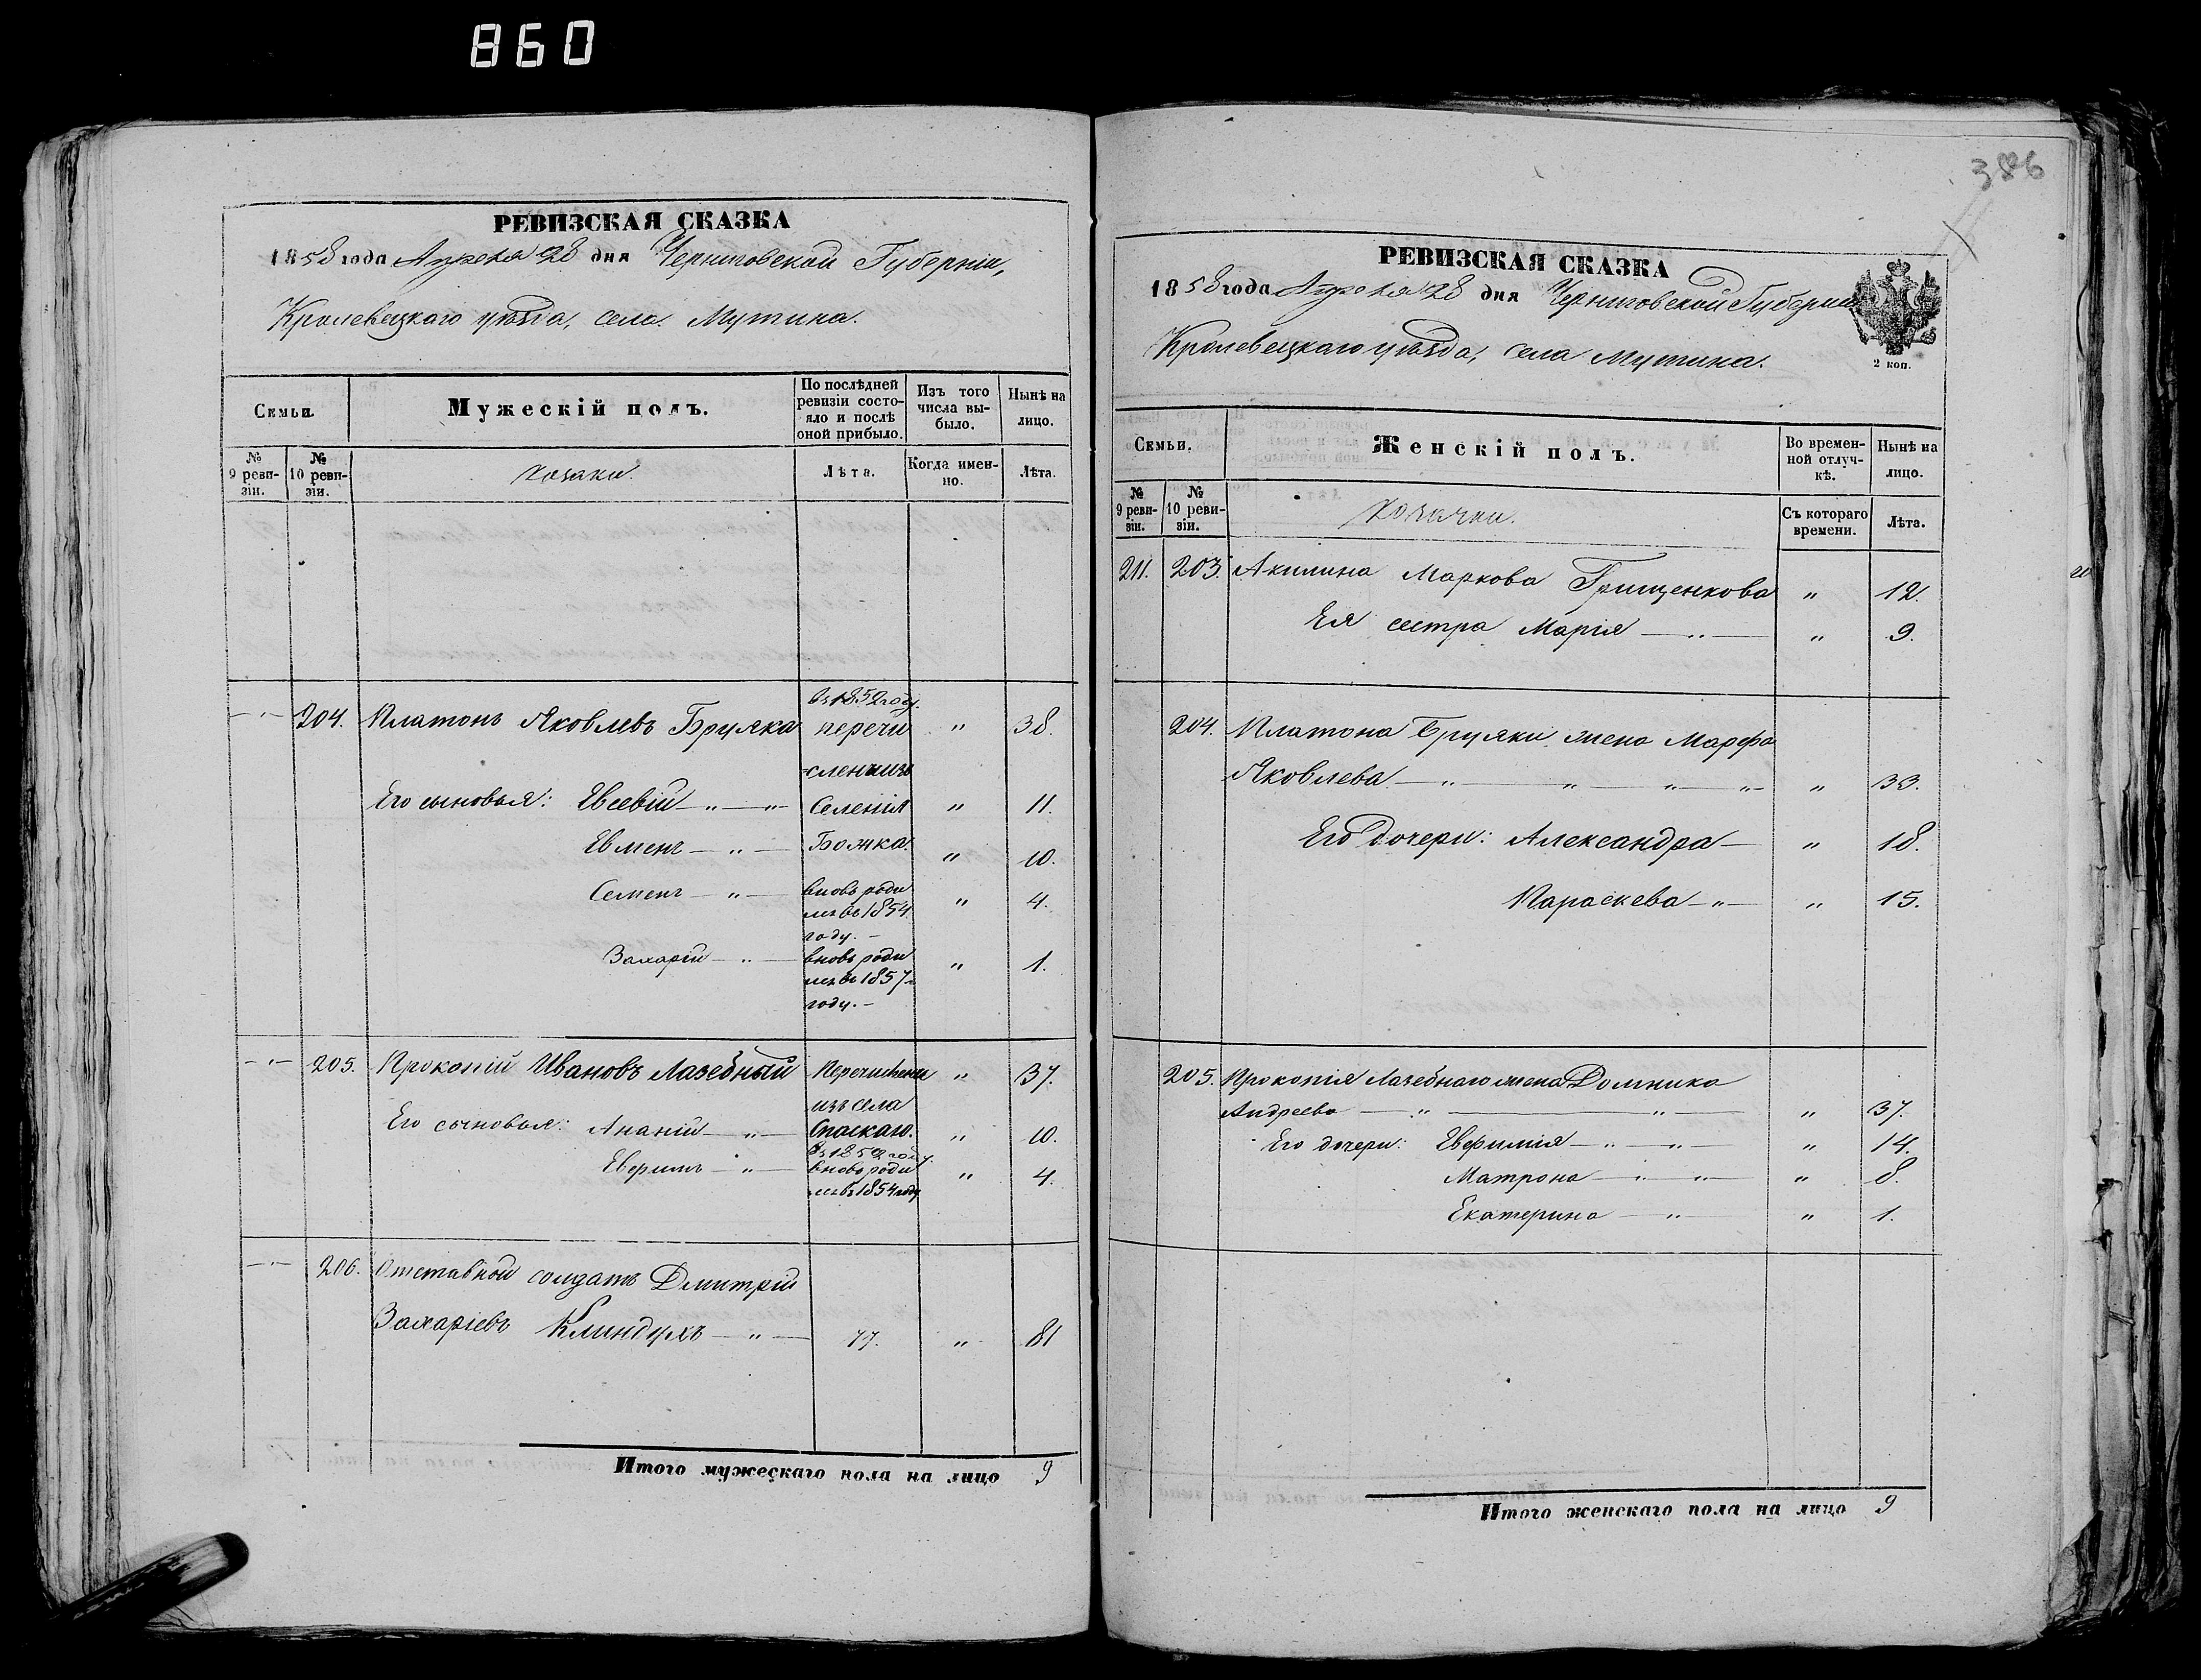 860
386
РЕВИЗСКАЯ СКАЗКА
1858 года Апреля 28 дня Черниговской Губерніи,
Кролевецкаго уѣзда, села Мутина.
Семьи.
Мужескій полъ.
По послѣдней ревизіи состояло и послѣ оной прибыло.
Изъ того числа выбыло.
Нынѣ на лицо.
№ 9 ревизіи.
№ 10 ревизіи.
Козаки.
Лѣта.
Когда именно.
Лѣта.
204. Платонъ Яковлевъ Бруяка въ 1852 году перечи „ 38.
сленъ изъ
Его сыновья: Евсевій — „ — „ — Селенія „ 11.
Евменъ — „ — Божка. „ 10.
Семенъ — „ — вновь роди „ 4.
лсь въ 1854
году. —
Захарій — „ — вновь роди „ 1.
лсь въ 1857
году. —
205. Прокопій Ивановъ Лазебный Перечислены „ 37.
изъ села
Его сыновья: Ананій — „ — Спаскаго. „ 10.
въ 1852 году.
Евфимъ — „ — вновь роди „ 4.
лсь въ 1854 году
206. Отставной солдатъ Дмитрій
Захаріевъ Клиндухъ — „ — 77. „ 81
Итого мужескаго пола на лицо 9
РЕВИЗСКАЯ СКАЗКА
1858 года Апреля 28 дня Черниговской Губерніи
Кролевецкаго уѣзда, села Мутина.
2 коп.
Семьи.
Женскій полъ.
Во временной отлучкѣ.
Нынѣ на лицо.
№ 9 ревизіи.
№ 10 ревизіи.
Козачки.
Съ котораго времени.
Лѣта.
211. 203. Акилина Маркова Грищенкова „ 12.
Ея сестра Марія — „ — „ 9.
204. Платона Бруяки жена Марфа
Яковлева — „ — „ — „ — „ — „ 33.
Его дочери: Александра — „ 18.
Параскева — „ — „ 15.
205. Прокопія Лазебнаго жена Домника
Андреева — „ — „ — „ 37.
Его дочери: Евфимія — „ — „ — „ 14.
Матрона — „ — „ — „ 8.
Екатерина — „ — „ 1.
Итого женскаго пола на лицо 9